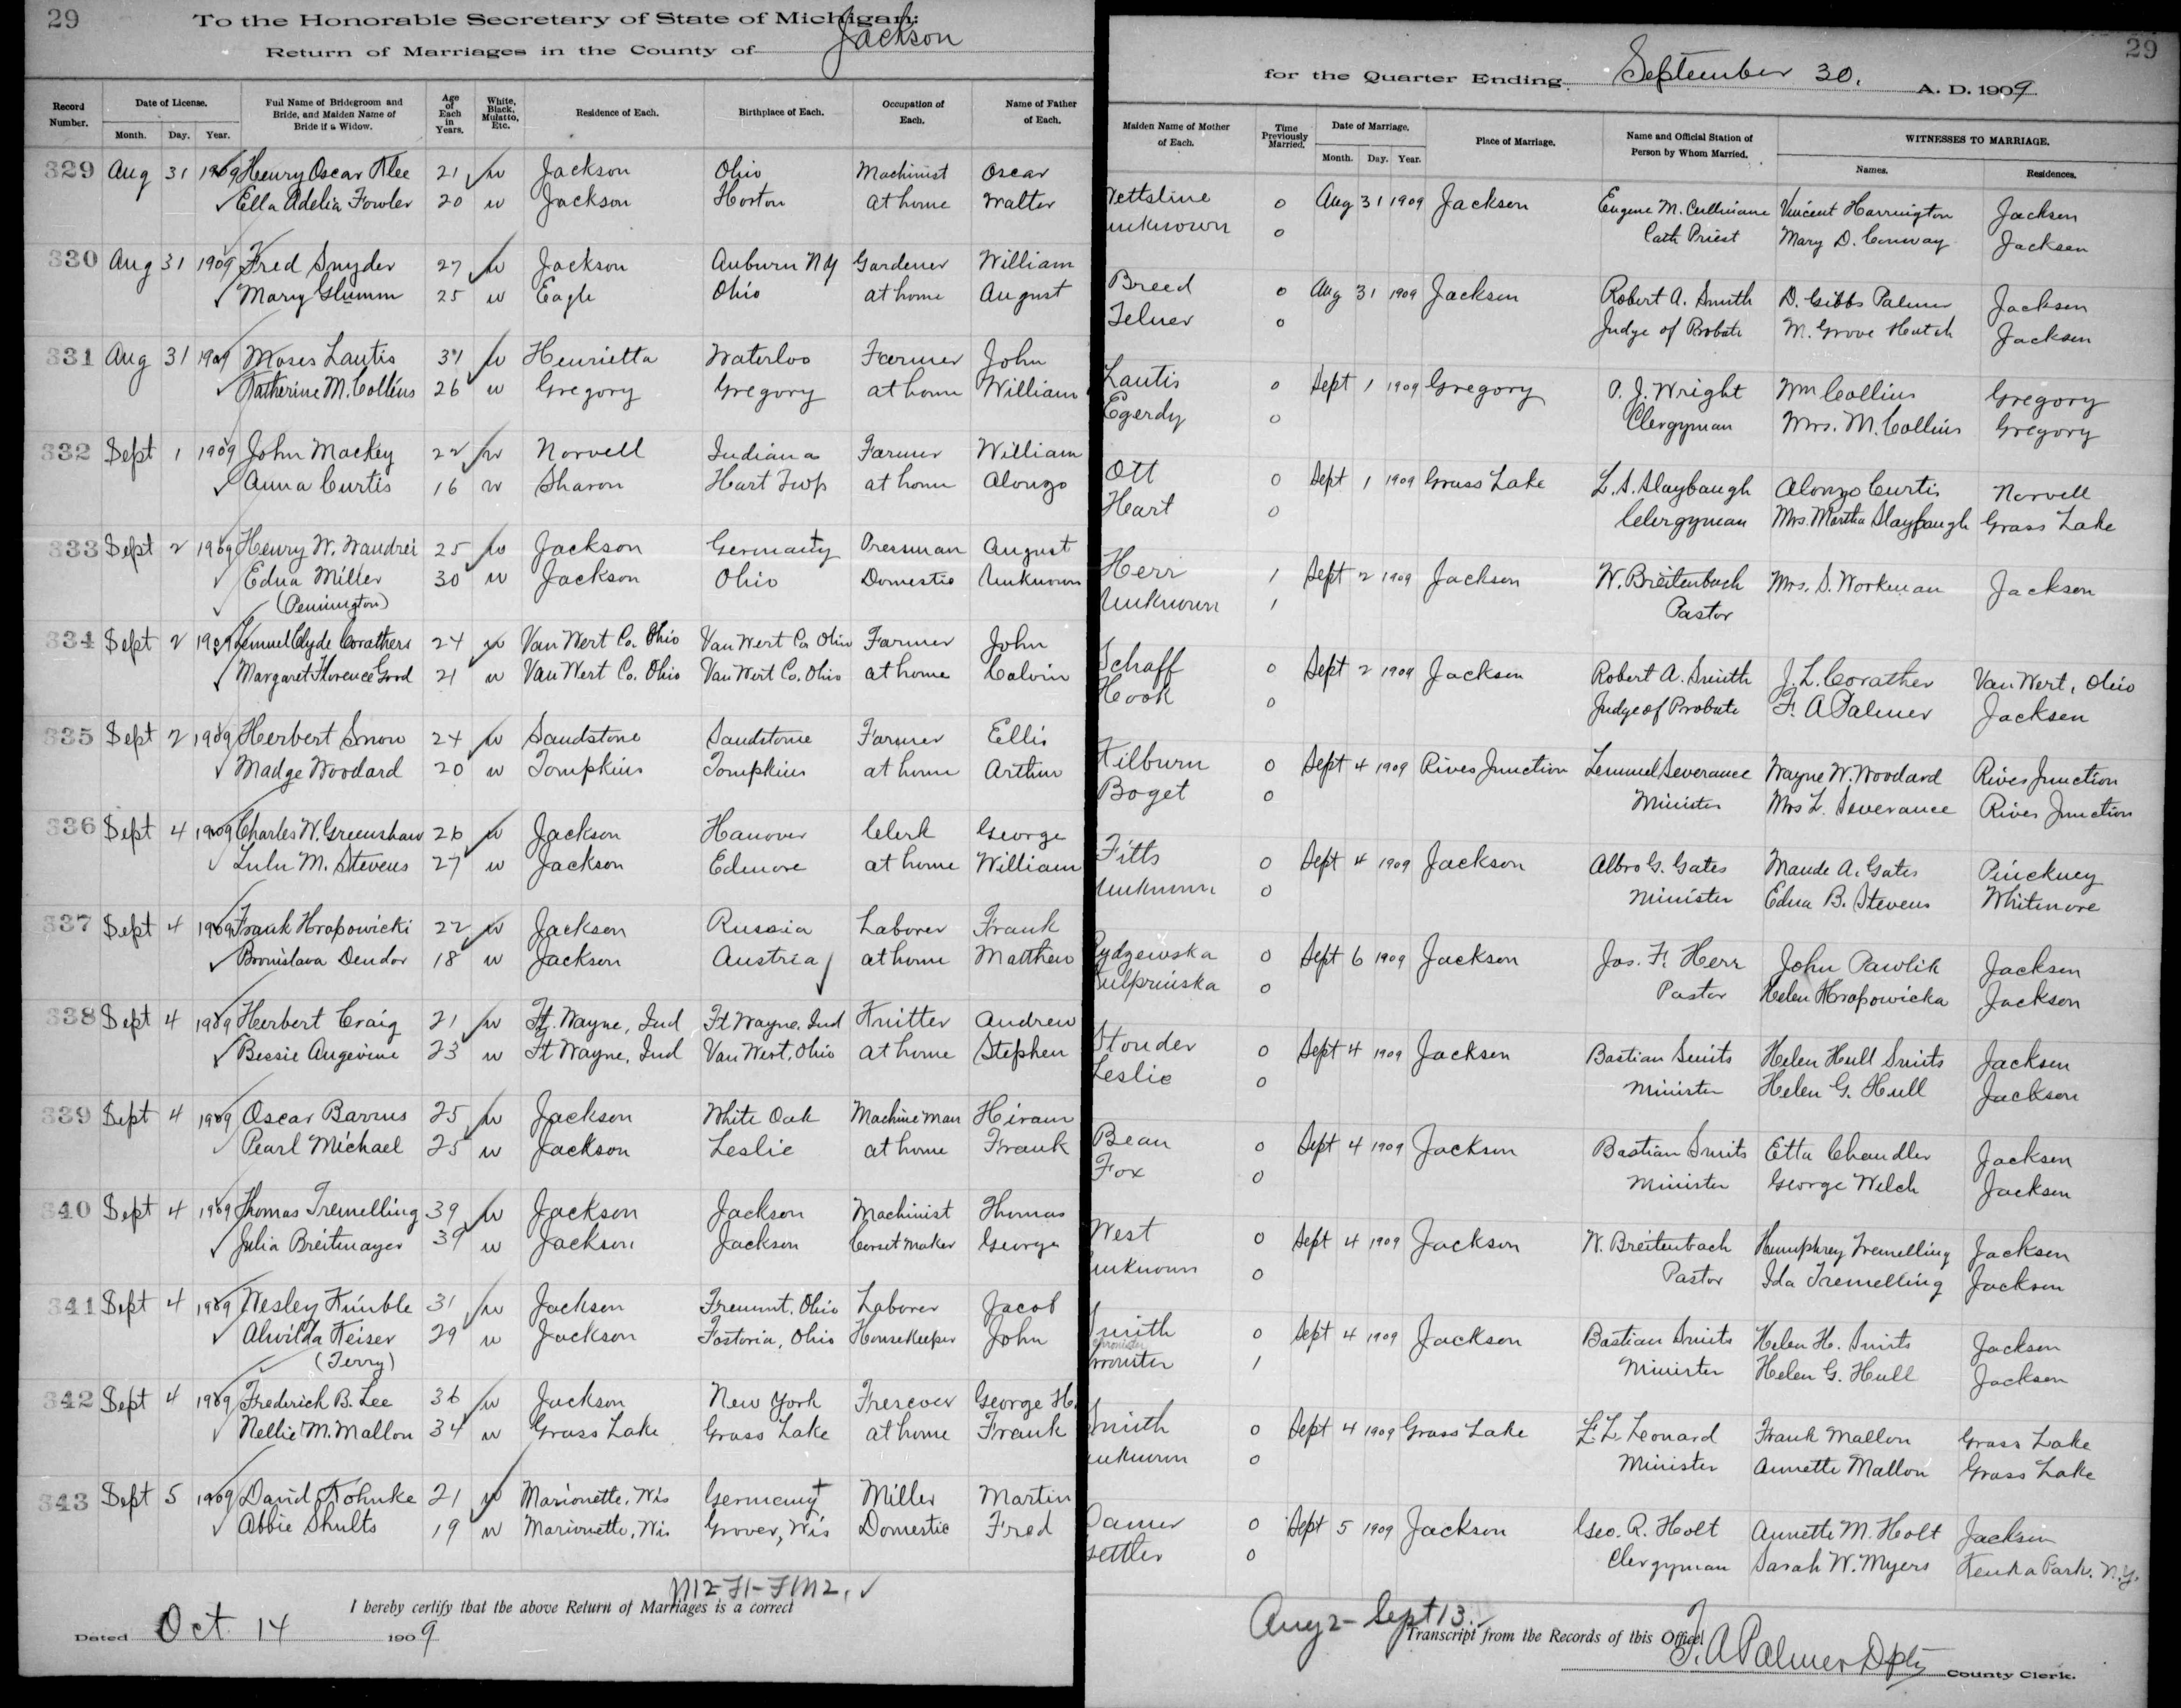 29
To the Honorable Secretary of State of Michigan:
Return of Marriages in the County of Jackson
Record Number. Date of License. Full Name of Bridegroom and Bride, and Maiden Name of Bride if a Widow. Age of Each in Years. White, Black, Mulatto, Etc. Residence of Each. Birthplace of Each. Occupation of Each. Name of Father of Each.
Month. Day. Year.
329 Aug 31 1909 Henry Oscar Klee 21 w Jackson Ohio Machinist Oscar
Ella Adelia Fowler 20 w Jackson Horton at home Walter
330 Aug 31 1909 Fred Snyder 27 w Jackson Auburn NY Gardener William
Mary Glumm 25 w Eagle Ohio at home August
331 Aug 31 1909 Moses Lantis 37 w Henrietta Waterloo Farmer John
Katherine M. Collins 26 w Gregory Gregory at home William
332 Sept 1 1909 John Mackey 22 w Norvell Indiana Farmer William
Anna Curtis 16 w Sharon Hart Twp at home Alonzo
333 Sept 2 1909 Henry W. Wandrei 25 w Jackson Germany Pressman August
Edna Miller 30 w Jackson Ohio Domestic Unknown
(Pennington)
334 Sept 2 1909 Lemuel Clyde Corathers 24 w Van Wert Co. Ohio Van Wert Co Ohio Farmer John
Margaret Florence Good 21 w Van Wert Co. Ohio Van Wert Co. Ohio at home Calvin
335 Sept 2 1909 Herbert Snow 24 w Sandstone Sandstone Farmer Ellis
Madge Woodard 20 w Tompkins Tompkins at home Arthur
336 Sept 4 1909 Charles W. Greenshaw 26 w Jackson Hanover Clerk George
Lulu M. Stevens 27 w Jackson Edmore at home William
337 Sept 4 1909 Frank Hropowicki 22 w Jackson Russia Laborer Frank
Bronislava Dendor 18 w Jackson Austria at home Matthew
338 Sept 4 1909 Herbert Craig 21 w Ft. Wayne, Ind Ft Wayne, Ind Knitter Andrew
Bessie Angevine 23 w Ft Wayne, Ind Van Wert, Ohio at home Stephen
339 Sept 4 1909 Oscar Barrus 25 w Jackson White Oak Machine man Hiram
Pearl Michael 25 w Jackson Leslie at home Frank
340 Sept 4 1909 Thomas Tremelling 39 w Jackson Jackson Machinist Thomas
Julia Breitmayer 39 w Jackson Jackson Corset Maker George
341 Sept 4 1909 Wesley Kimble 31 w Jackson Fremont, Ohio Laborer Jacob
Alwilda Keiser 29 w Jackson Fostoria, Ohio Housekeeper John
(Terry)
342 Sept 4 1909 Frederick B. Lee 36 w Jackson New York Frescoer George H.
Nellie M. Mallon 34 w Grass Lake Grass Lake at home Frank
343 Sept 5 1909 David Kohnke 21 w Marionette, Wis Germany Miller Martin
Abbie Shults 19 w Marionette, Wis Grover, Wis Domestic Fred
M12-F1-F1M2. ✓
I hereby certify that the above Return of Marriages is a correct
Dated Oct 14 1909
29
for the Quarter Ending September 30, A. D. 1909
Maiden Name of Mother of Each. Time Previously Married. Date of Marriage. Place of Marriage. Name and Official Station of Person by Whom Married. WITNESSES TO MARRIAGE.
Month. Day. Year. Names. Residences.
Wettsline 0 Aug 31 1909 Jackson Eugene M. Cullinane Vincent Harrington Jackson
Unknown 0 Cath Priest Mary D. Conway Jackson
Breed 0 Aug 31 1909 Jackson Robert A. Smith D. Gibbs Palmer Jackson
Telner 0 Judge of Probate M. Grove Hatch Jackson
Lantis 0 Sept 1 1909 Gregory P. J. Wright Wm Collins Gregory
Egerdy 0 Clergyman Mrs. M. Collins Gregory
Ott 0 Sept 1 1909 Grass Lake L. S. Slaybaugh Alonzo Curtis Norvell
Heart 0 Clergyman Mrs. Martha Slaybaugh Grass Lake
Herr 1 Sept 2 1909 Jackson W. Breitenbach Mrs. S. Workman Jackson
Unknown 1 Pastor
Schaff 0 Sept 2 1909 Jackson Robert A. Smith J. L. Corather Van Wert, Ohio
Hook 0 Judge of Probate F. A Palmer Jackson
Kilburn 0 Sept 4 1909 Rives Junction Lemuel Severance Wayne W. Woodard Rives Junction
Boget 0 Minister Mrs L. Severance Rives Junction
Fitts 0 Sept 4 1909 Jackson Albro G. Gates Maude A. Gates Pinckney
Unknown 0 Minister Edna B. Stevens Whitmore
Rydzewska 0 Sept 6 1909 Jackson Jos. F. Herr John Pawlik Jackson
0 Pastor Helen Hropowicka Jackson
Stouder 0 Sept 4 1909 Jackson Bastian Smits Helen Hull Smits Jackson
Leslie 0 Minister Helen G. Hull Jackson
Bean 0 Sept 4 1909 Jackson Bastian Smits Etta Chandler Jackson
Fox 0 Minister George Welch Jackson
West 0 Sept 4 1909 Jackson W. Breitenbach Humphrey Tremelling Jackson
Unknown 0 Pastor Ida Tremelling Jackson
Smith 0 Sept 4 1909 Jackson Bastian Smits Helen H. Smits Jackson
1 Minister Helen G. Hull Jackson
Smith 0 Sept 4 1909 Grass Lake E. L. Leonard Frank Mallon Grass Lake
Unknown 0 Minister Annette Mallon Grass Lake
Damer 0 Sept 5 1909 Jackson Geo. R. Holt Annette M. Holt Jackson
0 Clergyman Sarah W. Myers Keuka Park. N.Y.
Aug 2 - Sept 13. ✓
Transcript from the Records of this Office.
F. A Palmer Dpty County Clerk.